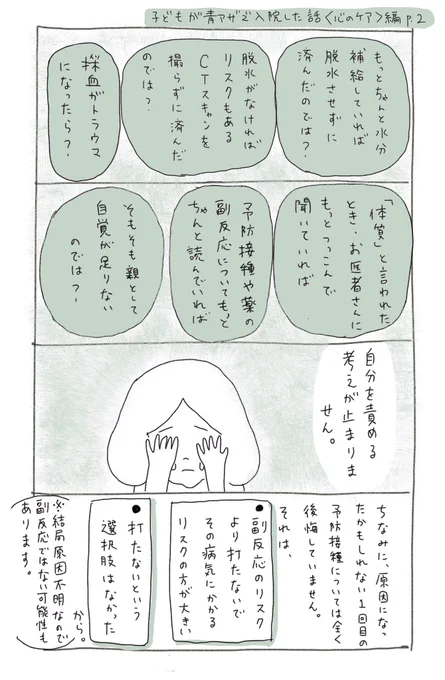 子どもが青アザで入院した話〈心のケア〉編 P.2
もっとちゃんと水分
補給していれば
脱水させずに
済んだのでは？
脱水がなければ
リスクもある
CTスキャンを
撮らずに済んだ
のでは？
採血がトラウマ
になったら？
「体質」と言われた
とき、お医者さんに
もっとつっこんで
聞いていれば
予防接種や薬の
副反応についてもっと
ちゃんと読んでいれば
そもそも親として
自覚が足りない
のでは？
自分を責める
考えが止まりま
せん。
ちなみに、原因になっ
たかもしれない1回目の
予防接種については全く
後悔していません。
それは、
●副反応のリスク
より打たないで
その病気にかかる
リスクの方が大きい
●打たないという
選択肢はなかった
から。
※結局原因不明なので
副反応ではない可能性も
あります。